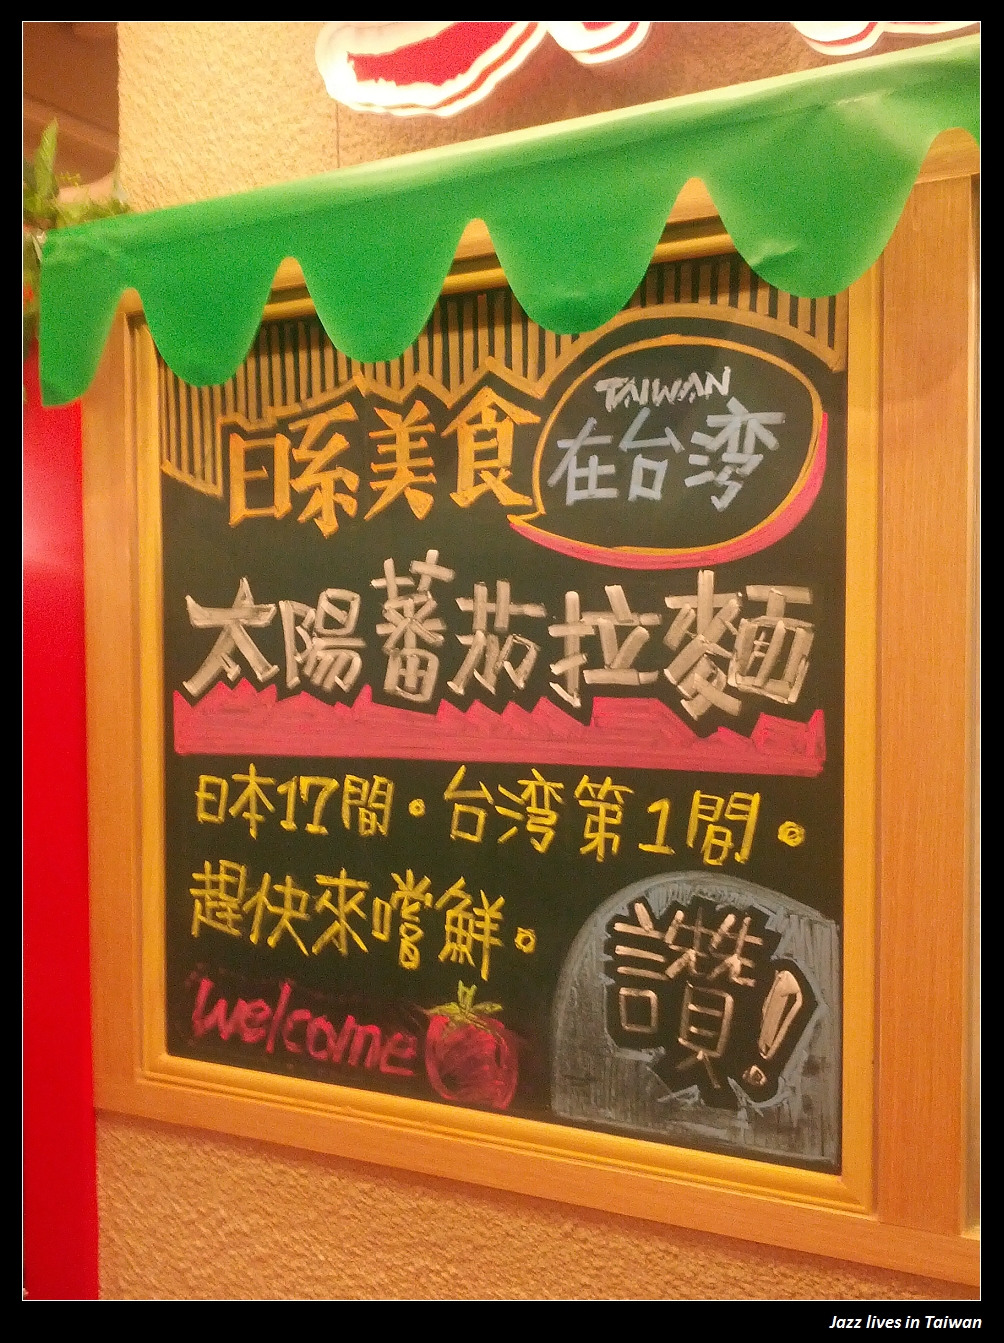 日系美食
TAIWAN
在台湾
太陽蕃茄拉麵
日本17間。台湾第1間。
趕快來嚐鮮。
讚!
welcome
Jazz lives in Taiwan